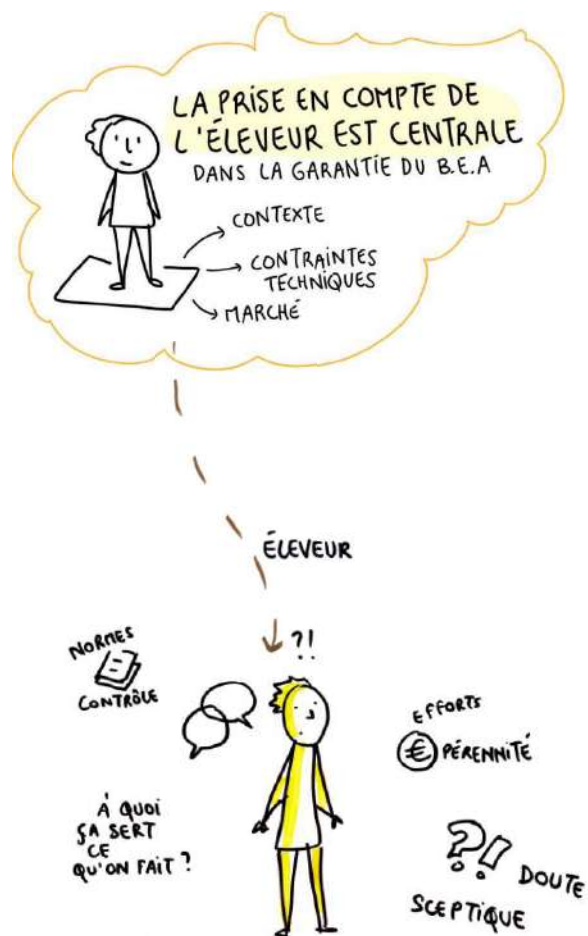 LA PRISE EN COMPTE DE
L'ÉLEVEUR EST CENTRALE
DANS LA GARANTIE DU B.E.A
CONTEXTE
CONTRAINTES
TECHNIQUES
MARCHÉ
ÉLEVEUR
?!
NORMES
CONTRÔLE
EFFORTS
€ PÉRENNITÉ
À QUOI
ÇA SERT
CE
QU'ON FAIT ?
?! DOUTE
SCEPTIQUE